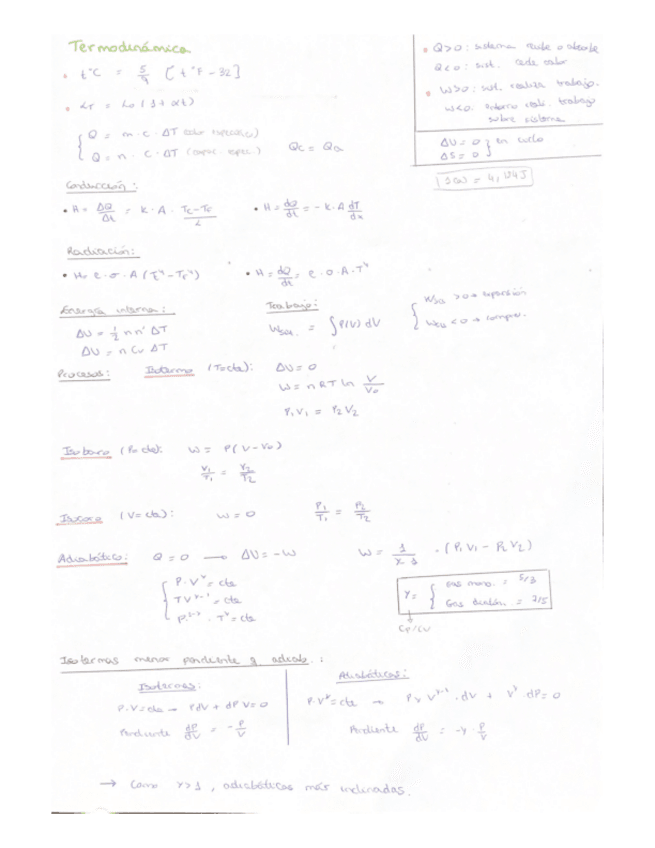 Termodinámica
• t°C = 5/9 [t°F - 32]
• LT = Lo (1 + αt)
Q = m · c · ΔT (calor específico)
Q = n · C · ΔT (capac. espec.) Qc = Qa
• Q>0: sistema recibe o absorbe
Q<0: sist. cede calor
• W>0: sist. realiza trabajo.
W<0: entorno realiz. trabajo
sobre sistema
ΔU = 0
ΔS = 0 } en ciclo
1 cal = 4,184J
Conducción:
• H = ΔQ/Δt = k · A · Tc-Tf/L • H = dQ/dt = -k·A dT/dx
Radiación:
• H = e · σ · A (T⁴ - Ts⁴) • H = dQ/dt = e · σ · A · T⁴
Energía interna: Trabajo:
ΔU = 1/2 n n' ΔT
ΔU = n Cv ΔT
Wsist. = ∫P(V) dV
Wsis >0 → expansión
Wsis <0 → compres.
Procesos: Isotermo (T=cte): ΔU = 0
W = n R T ln V/Vo
P₁V₁ = P₂V₂
Isobaro (P=cte): W = P(V-Vo)
V₁/T₁ = V₂/T₂
Isocoro (V=cte): W = 0 P₁/T₁ = P₂/T₂
Adiabático: Q = 0 → ΔU = -W W = 1/γ-1 · (P₁V₁ - P₂V₂)
P·V^γ = cte
TV^γ-1 = cte
P^1-γ · T^γ = cte
γ = { Gas mono. = 5/3
Gas diatóm. = 7/5
Cp/Cv
Isotermas menor pendiente q adiab.:
Isotermas:
P·V=cte → PdV + dP V = 0
Pendiente dP/dV = -P/V
Adiabáticas:
P·V^γ = cte → P γ V^γ-1 · dV + V^γ · dP = 0
Pendiente dP/dV = -γ · P/V
→ Como γ>1, adiabáticas más inclinadas.